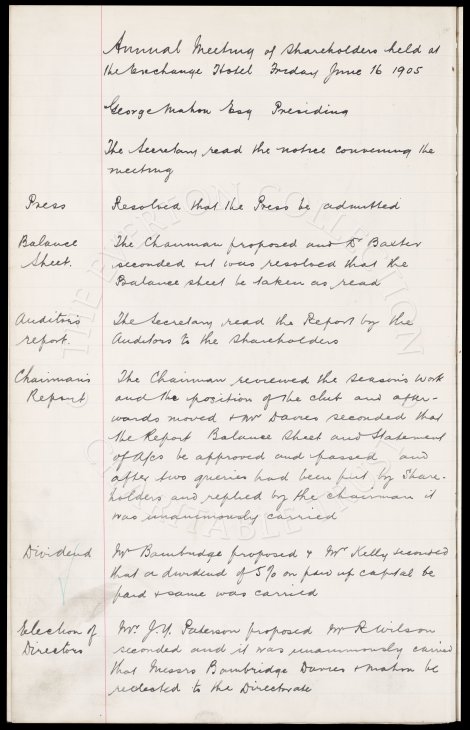 Annual Meeting of Shareholders held at
the Exchange Hotel Friday June 16 1905
George Mahon Esq Presiding
The Secretary read the notice convening the
meeting
Press Resolved that the Press be admitted
Balance The Chairman proposed and Dr Baxter
Sheet. seconded & it was resolved that the
Balance sheet be taken as read
Auditors The Secretary read the Report by the
report. Auditors to the Shareholders
Chairman's The Chairman reviewed the seasons work
Report and the position of the club and after-
wards moved & Mr Davies seconded that
the Report Balance Sheet and Statement
of A/cs be approved and passed and
after two queries had been put by Share-
holders and replied by the chairman it
was unanimously carried
Dividend Mr Bainbridge proposed & Mr Kelly seconded
that a dividend of 5% on paid up capital be
paid & same was carried
Election of Mr. J. Y. Paterson proposed Mr R Wilson
Directors seconded and it was unanimously carried
that Messrs Bainbridge Davies & Mahon be
reelected to the Directorate
THE EVERTON COLLECTION
CHARITABLE TRUST